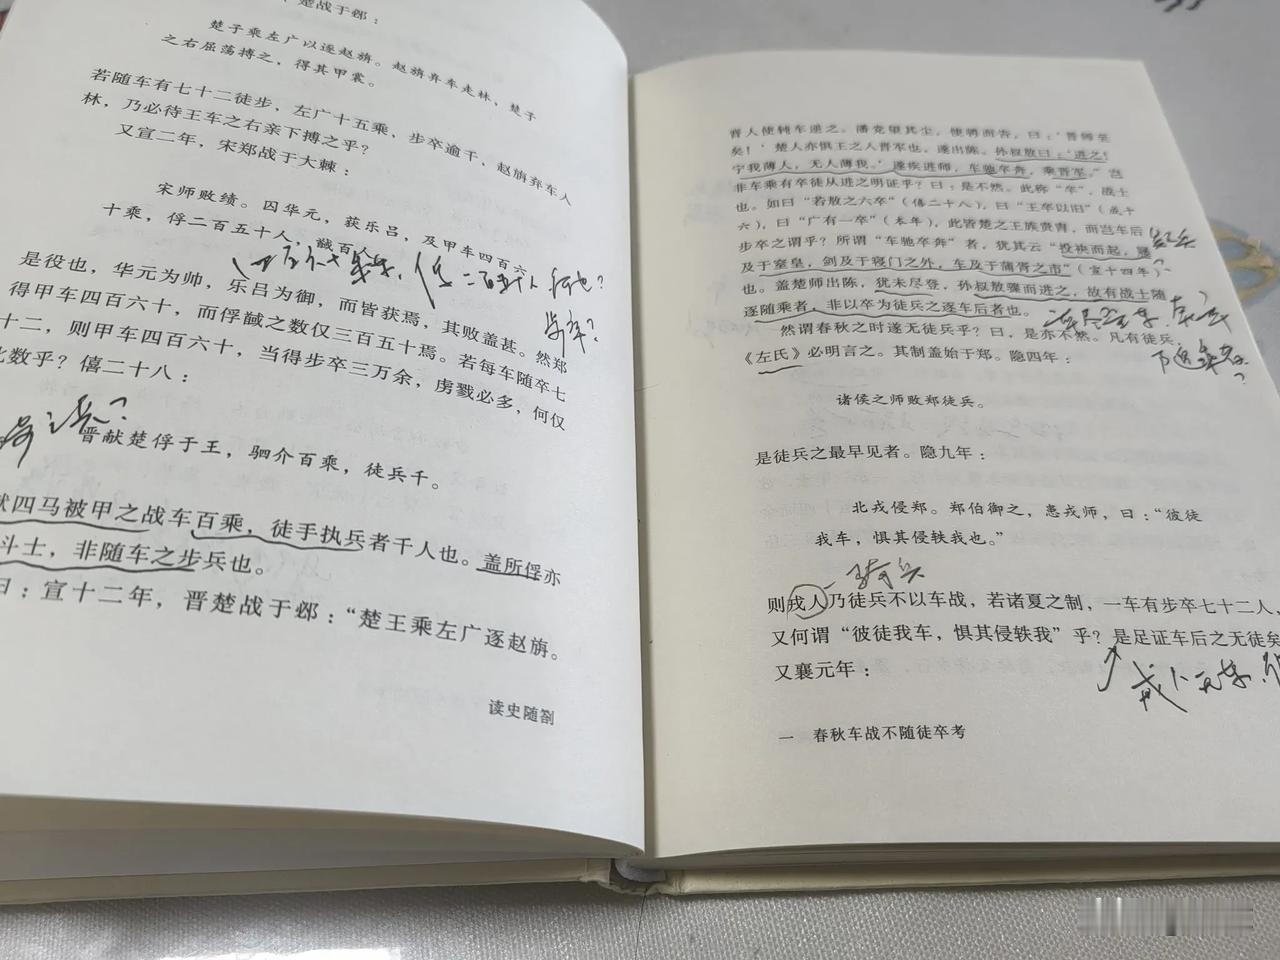 楚战于邲：
楚子乘左广以逐赵旃。赵旃弃车走林，楚子
之右屈荡搏之，得其甲裳。
若随车有七十二徒步，左广十五乘，步卒逾千，赵旃弃车入
林，乃必待王车之右亲下搏之乎？
又宣二年，宋郑战于大棘：
宋师败绩。囚华元，获乐吕，及甲车四百六
十乘，俘二百五十人，馘百人
是役也，华元为帅，乐吕为御，而皆获焉，其败盖甚。然郑
得甲车四百六十，而俘馘之数仅三百五十焉。若每车随卒七
十二，则甲车四百六十，当得步卒三万余，虏戮必多，何仅
此数乎？僖二十八：
晋献楚俘于王，驷介百乘，徒兵千。
献四马被甲之战车百乘，徒手执兵者千人也。盖所俘亦
斗士，非随车之步兵也。
曰：宣十二年，晋楚战于邲：“楚王乘左广逐赵旃。
读史随劄
晋人使𫐄车逆之。潘党望其尘，使骋而告，曰：‘晋师至
矣！’楚人亦惧王之入晋军也，遂出陈。孙叔敖曰：‘进之！
宁我薄人，无人薄我。’遂疾进师，车驰卒奔，乘晋军。”岂
非车乘有卒徒从进之明证乎？曰：是不然。此称“卒”，战士
也。如曰“若敖之六卒”（僖二十八），曰“王卒以旧”（成十
六），曰“广有一卒”（本年），此皆楚之王族贵胄，而岂车后
步卒之谓乎？所谓“车驰卒奔”者，犹其云“投袂而起，屦
及于窒皇，剑及于寝门之外，车及于蒲胥之市”（宣十四年）
也。盖楚师出陈，犹未尽登，孙叔敖骤而进之，故有战士随
逐随乘者，非以卒为徒兵之逐车后者也。
然谓春秋之时遂无徒兵乎？曰，是亦不然。凡有徒兵，
《左氏》必明言之。其制盖始于郑。隐四年：
诸侯之师败郑徒兵。
是徒兵之最早见者。隐九年：
北戎侵郑。郑伯御之，患戎师，曰：“彼徒
我车，惧其侵轶我也。”
骑兵
则戎人乃徒兵不以车战，若诸夏之制，一车有步卒七十二人，
又何谓“彼徒我车，惧其侵轶我”乎？是足证车后之无徒矣
又襄元年：
一 春秋车战不随徒卒考